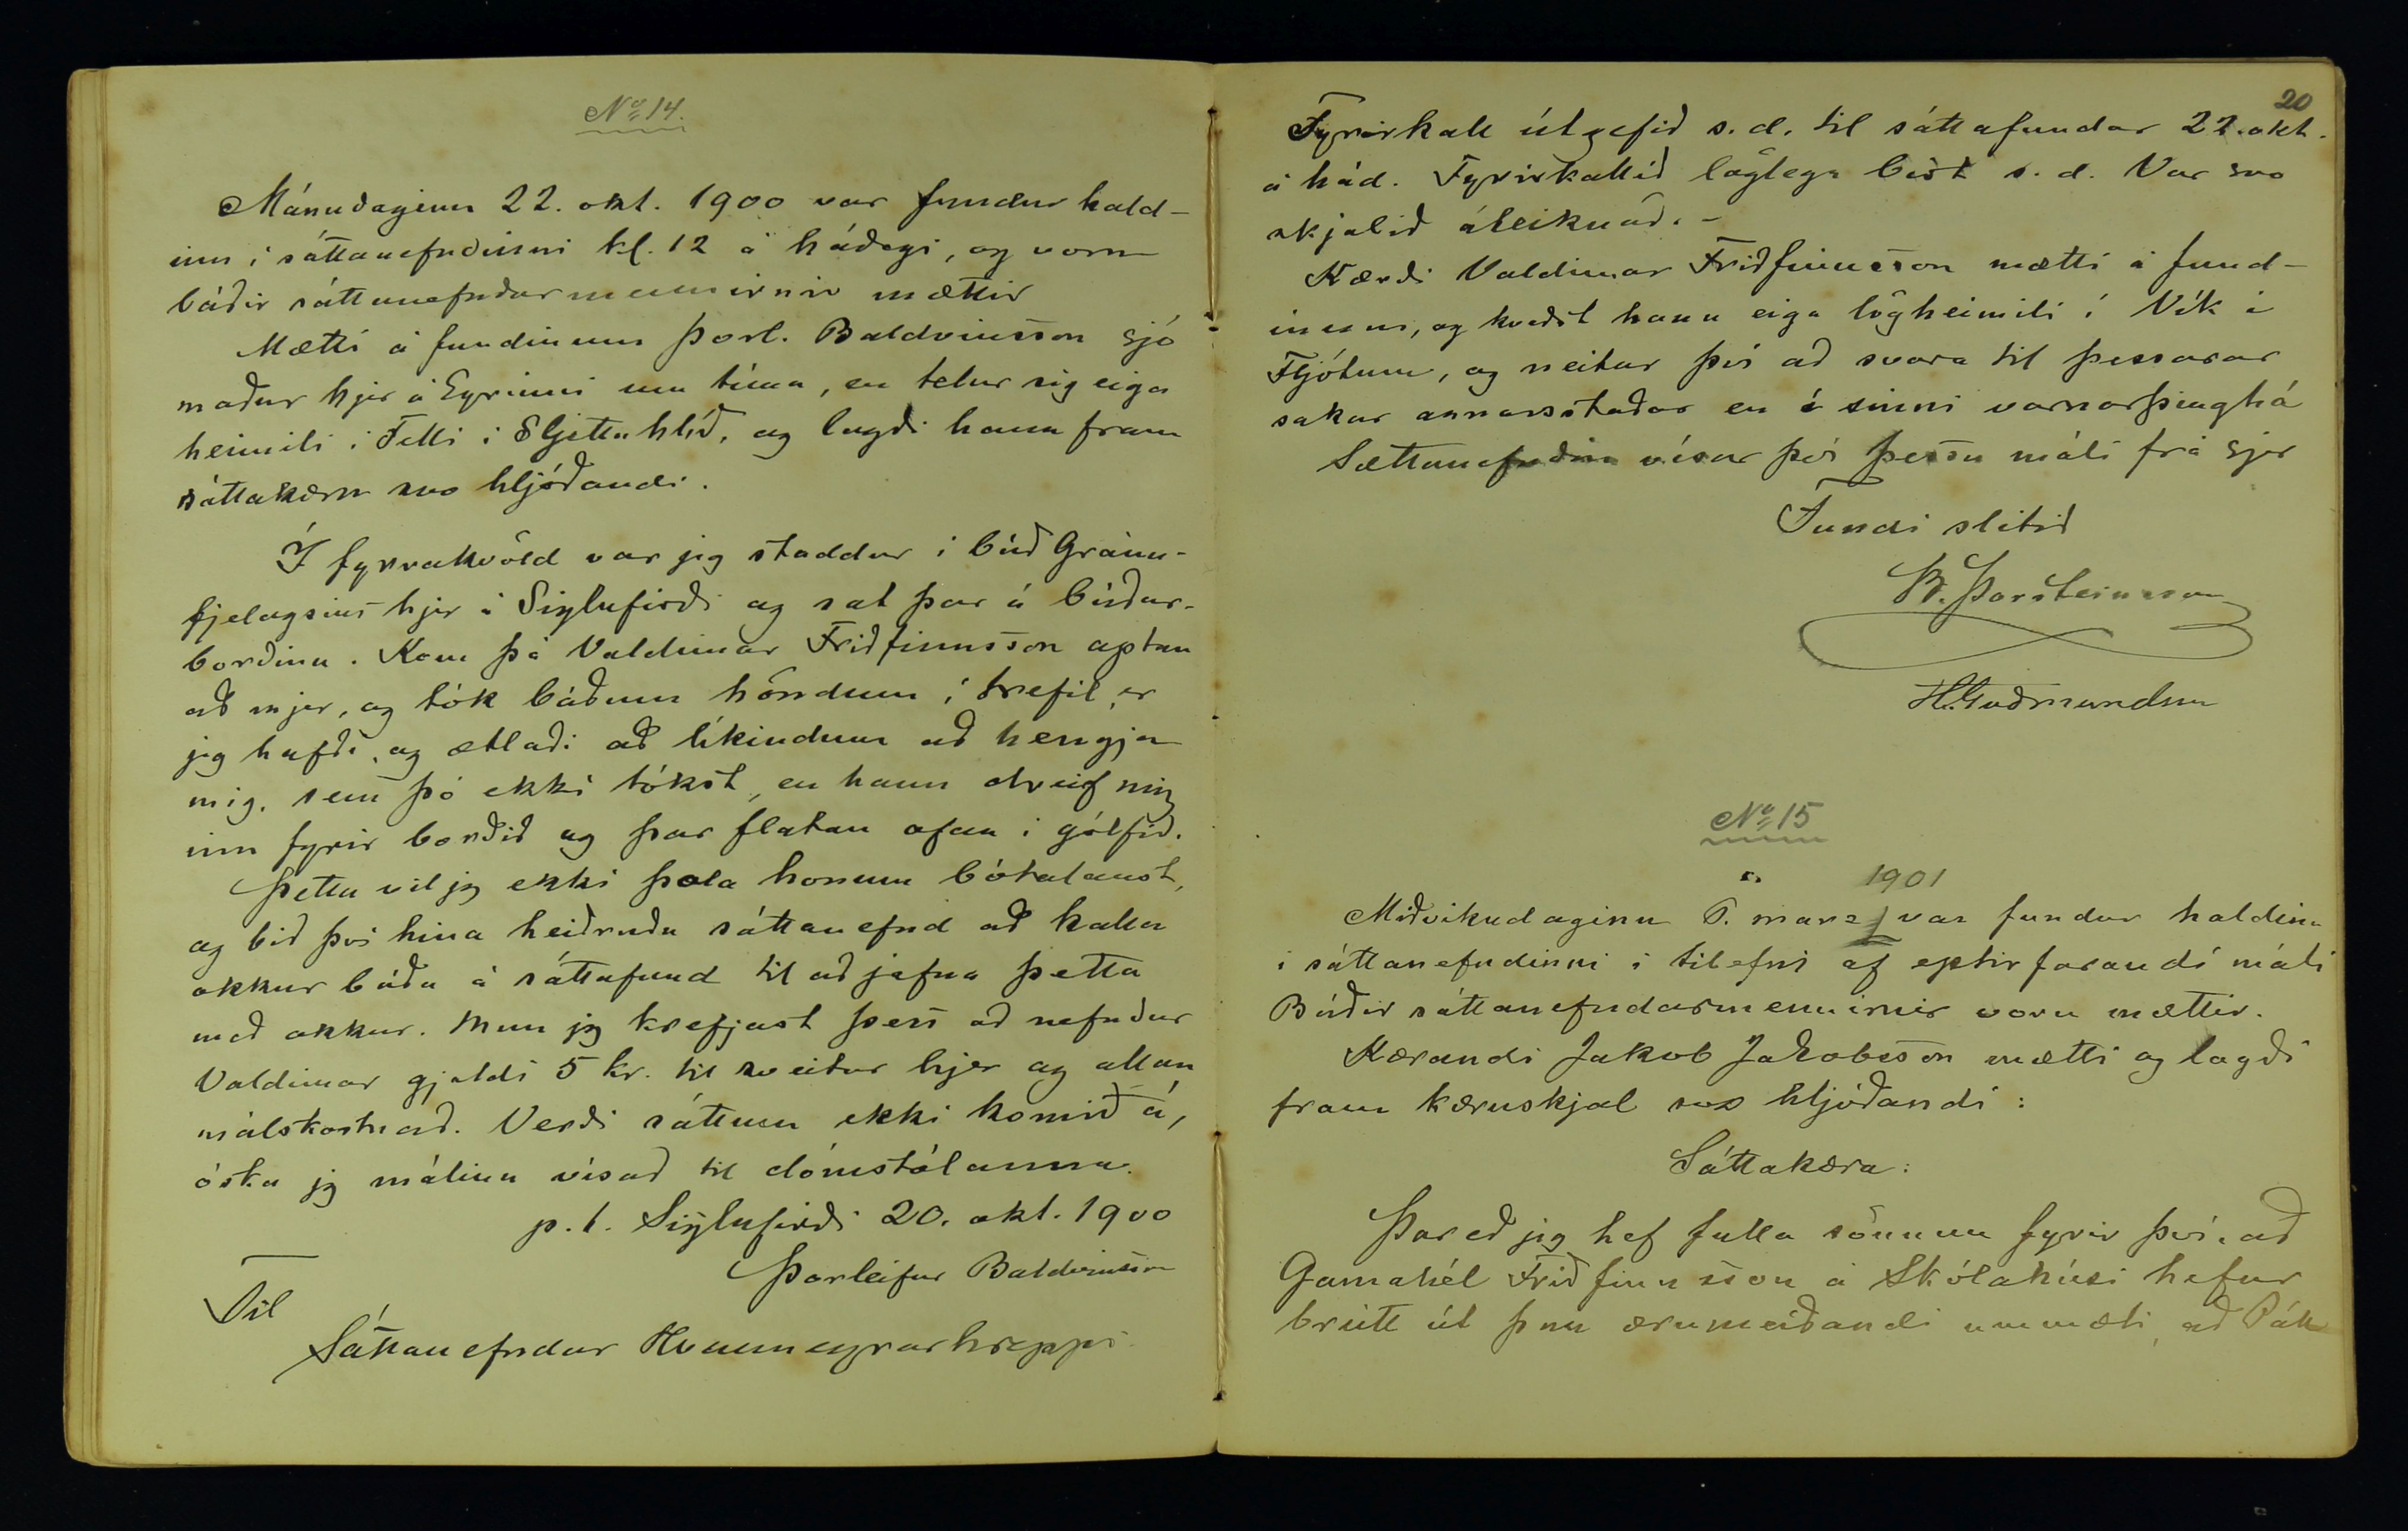 No 14.
Mánudaginn 22. okt. 1900 var fundur hald-
inn í sáttanefndinni kl. 12 á hádegi, og voru
báðir sáttanefndarmennirnir mættir
Mætti á fundinum Þorl. Baldvinsson sjó
maður hjer á Eyrinni um tíma, en telur sig eiga
heimili í Felli í Sljettuhlíð, og lagði hann fram
sáttakæru svo hljóðandi.
Í fyrrakvöld var jeg staddur í búð Gránu-
fjelagsins hjer á Siglufirði og sat þar á búðar-
borðinu. Kom þá Valdimar Friðfinnsson aptan
að mjer, og tók báðum höndum í trefil, er
jeg hafði, og ætlaði að líkindum að hengja
mig, sem þó ekki tókst, en hann dreif mig
inn fyrir borðið og þar flatan ofan í gólfið.
Þetta vil jeg ekki þola honum bótalaust,
og bið því hina heiðruðu sáttanefnd að kalla
okkur báða á sáttafund til að jafna þetta
með okkur. Mun jeg krefjast þess að nefndur
Valdimar gjaldi 5 kr. til sveitar hjer og allan
málskostnað. Verði sáttum ekki komið á,
óska jeg málinu vísað til dómstólanna.
p.t. Siglufirði 20. okt. 1900
Þorleifur Baldvinsson
Til
Sáttanefndar Hvanneyrarhrepps
20
Fyrirkall útgefið s.d. til sáttafundar 22. okt.
á hád. Fyrirkallið löglega birt s.d. Var svo
skjalið áteiknað. -
Kærði Valdimar Friðfinnsson mætti á fund-
inum, og kveðst hann eiga lögheimili í Vík í
Fljótum, og neitar því að svara til þessarar
sakar annarsstaðar en í sinni varnarþinghá
Sættanefndin vísar því þessu máli frá sjer
Fundi slitið
B. Þorsteinsson
H. Guðmundsson
No 15
1901
Miðvikudaginn 6. marz var fundur haldinn
í sáttanefndinni í tilefni af eptirfarandi máli
Báðir sáttanefndarmennirnir voru mættir.
Kærandi Jakob Jakobsson mætti og lagði
fram kæruskjal svo hljóðandi:
Sáttakæra:
Þareð jeg hef fulla sönnun fyrir því, að
Gamalíel Friðfinnsson á Skólahúsi hefur
brúkt út þau ærumeiðandi ummæli, að Páll